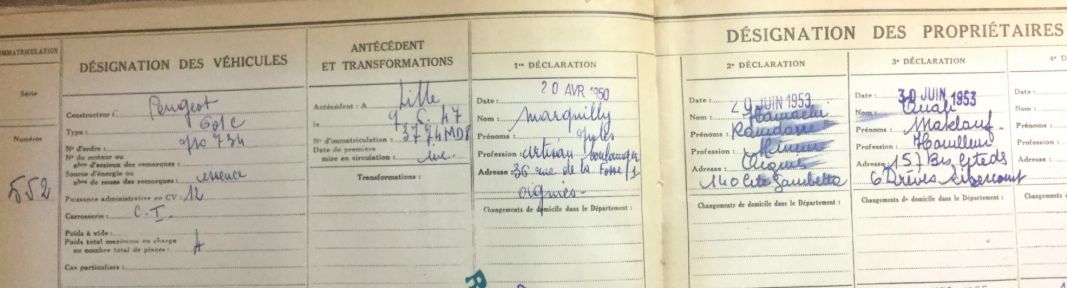 IMMATRICULATION
Série
Numéros
552
DÉSIGNATION DES VÉHICULES
Constructeur : Peugeot
Type :
N° d'ordre : 990 734
N° du moteur ou
nbre d'essieux des remorques :
Source d'énergie ou
nbre de roues des remorques : essence
Puissance administrative en CV : 12
Carrosserie : C. I.
Poids à vide :
Poids total maximum en charge
ou nombre total de places : 4
Cas particuliers :
ANTÉCÉDENT
ET TRANSFORMATIONS
Antécédent : A Lille
le 9. 5. 47
N° d'immatriculation : 3774 MD8
Date de première
mise en circulation :
Transformations :
DÉSIGNATION DES PROPRIÉTAIRES
1re DÉCLARATION
Date : 20 AVR 1950
Nom : Marquilly
Prénoms : Jules
Profession : Artisan boulanger
Adresse : 36 rue de la Fosse
Oignies
Changements de domicile dans le Département :
2e DÉCLARATION
Date : 20 JUIN 1953
Nom : Hamachi
Prénoms : Ramdane
Profession : Mineur
Adresse : Oignies
140 Cité Gambetta
Changements de domicile dans le Département :
3e DÉCLARATION
Date : 30 JUIN 1953
Nom : Ouali
Prénoms : Maklouf
Profession : Houilleur
Adresse : 157 Bis Cité des
6 Drèves Libercourt
Changements de domicile dans le Département :